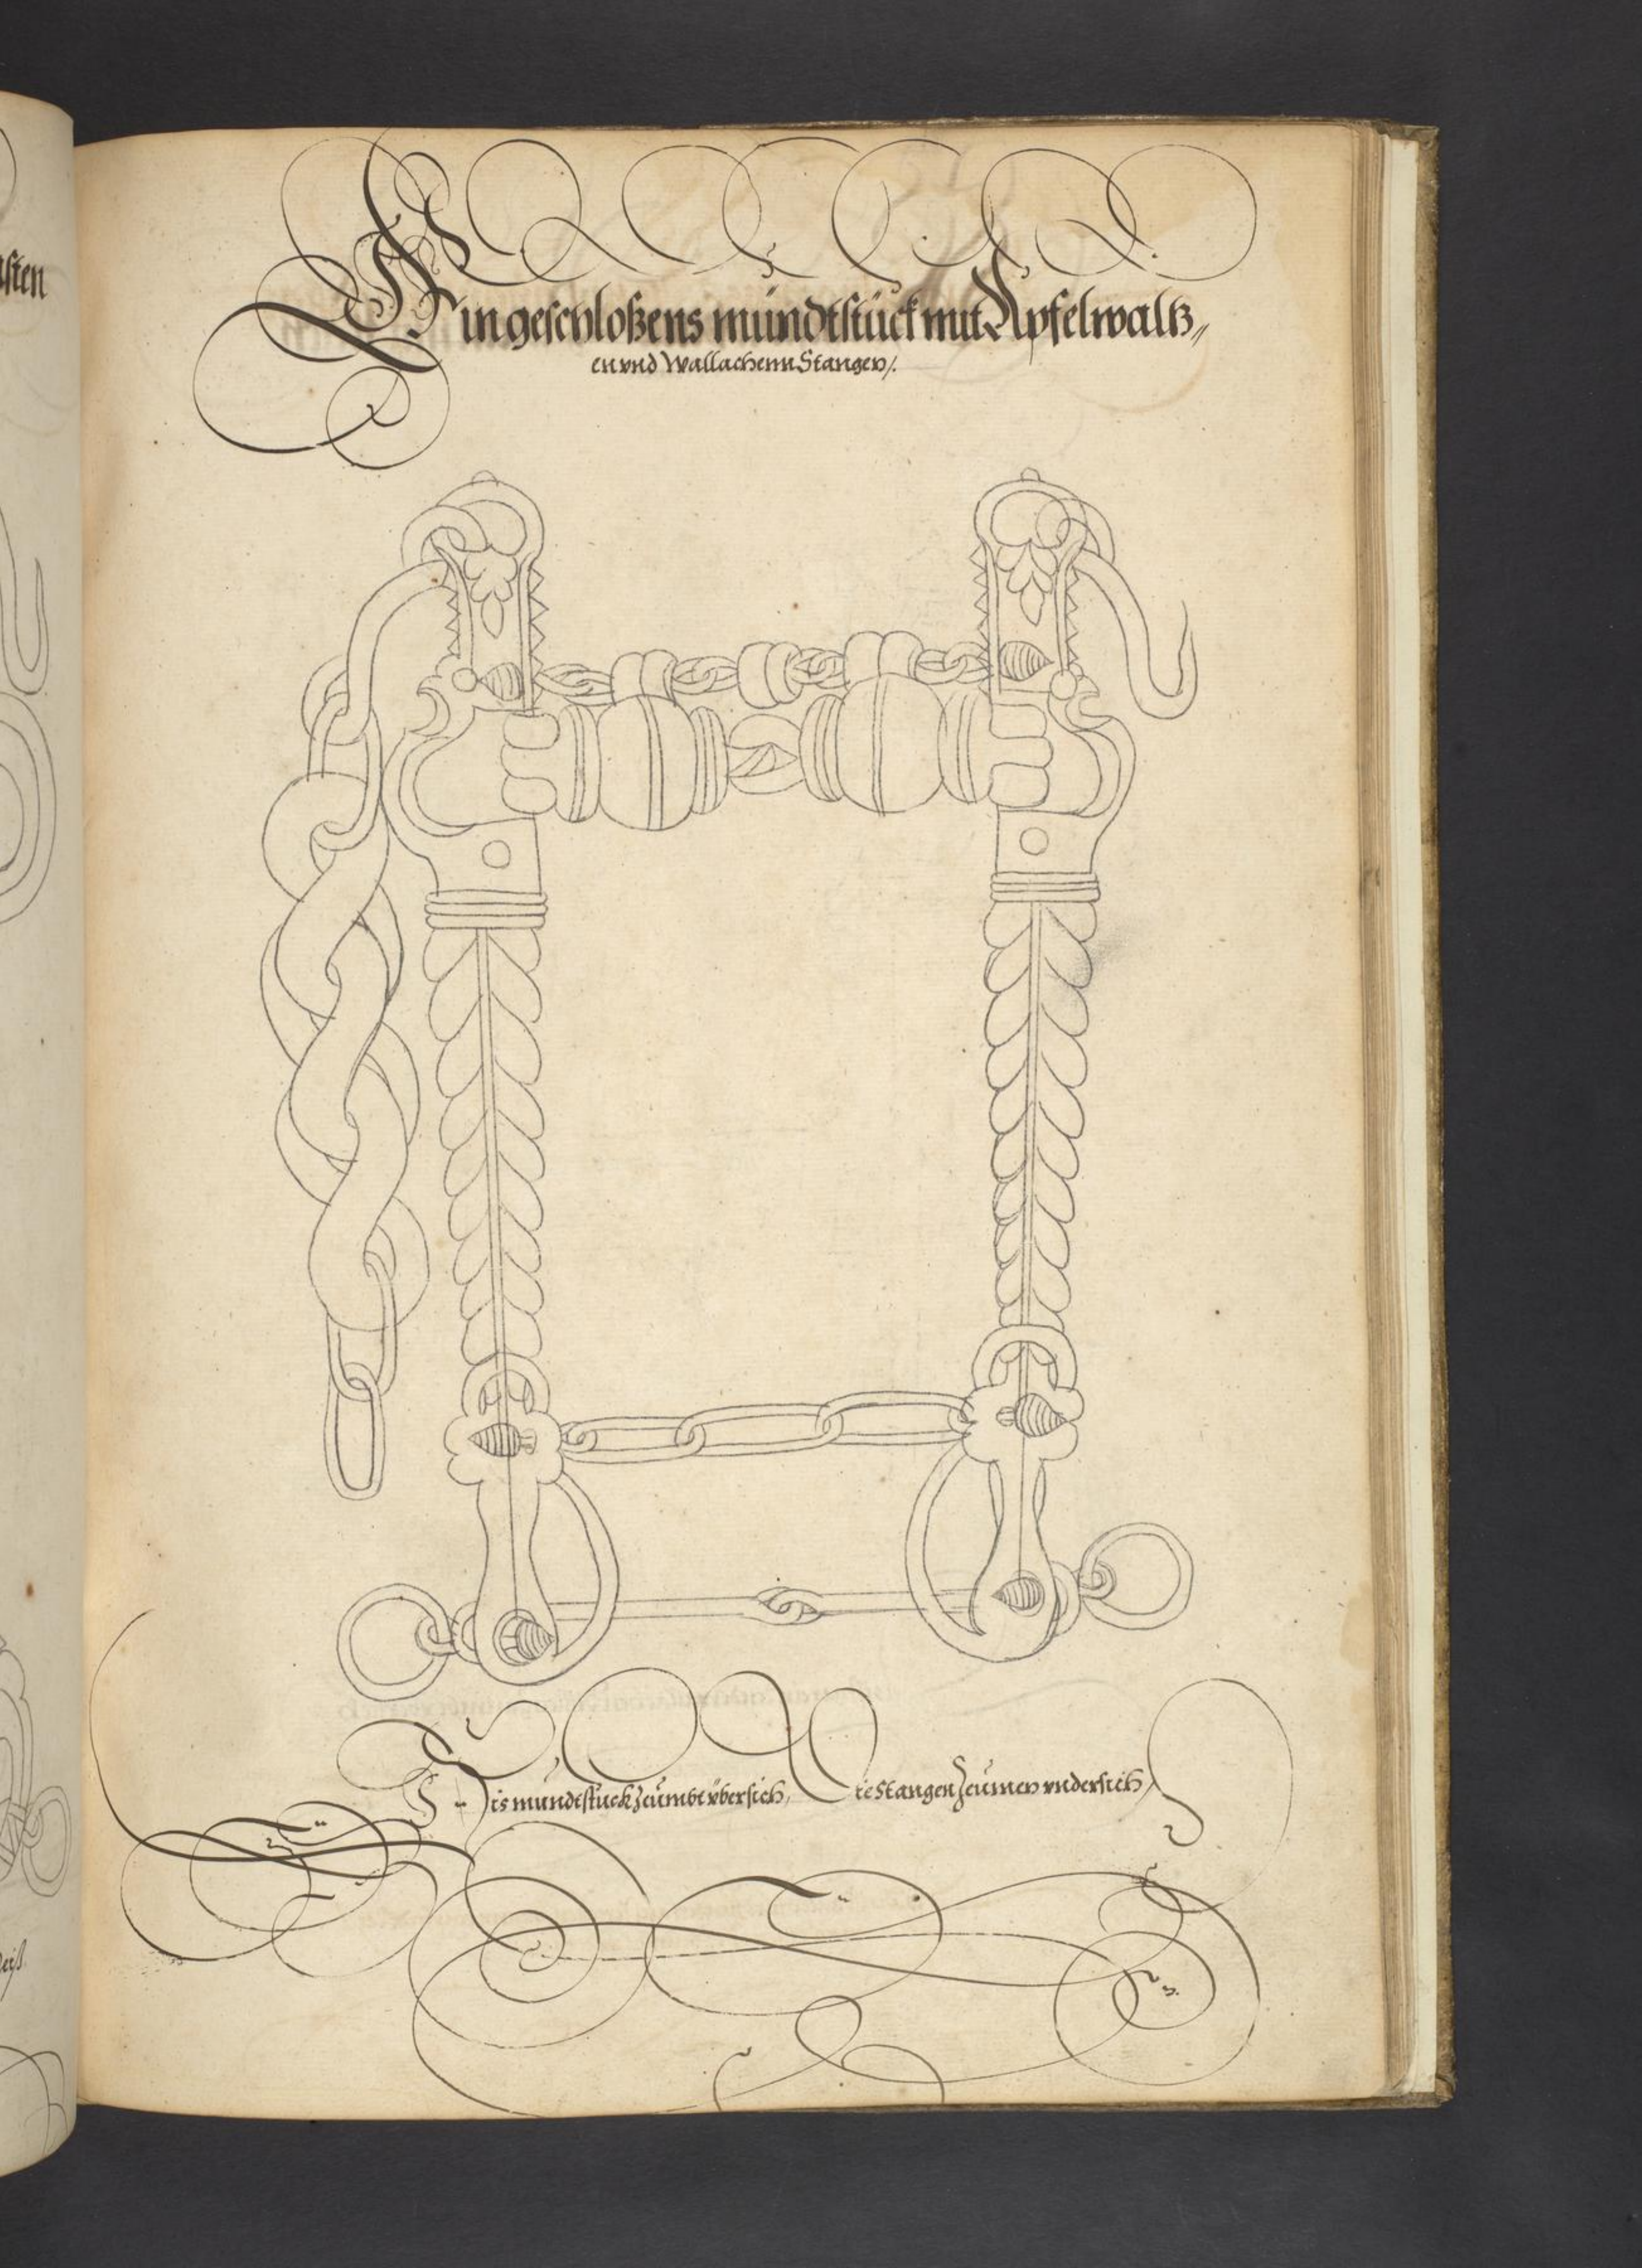 Ein geschloßens mündtstück mit Apfelwaltz„
en vnd Wallachenn Stangen/.
Dis mündtstuck Zeümbt übersich, Die Stangen Zeümen vndersich/
sten